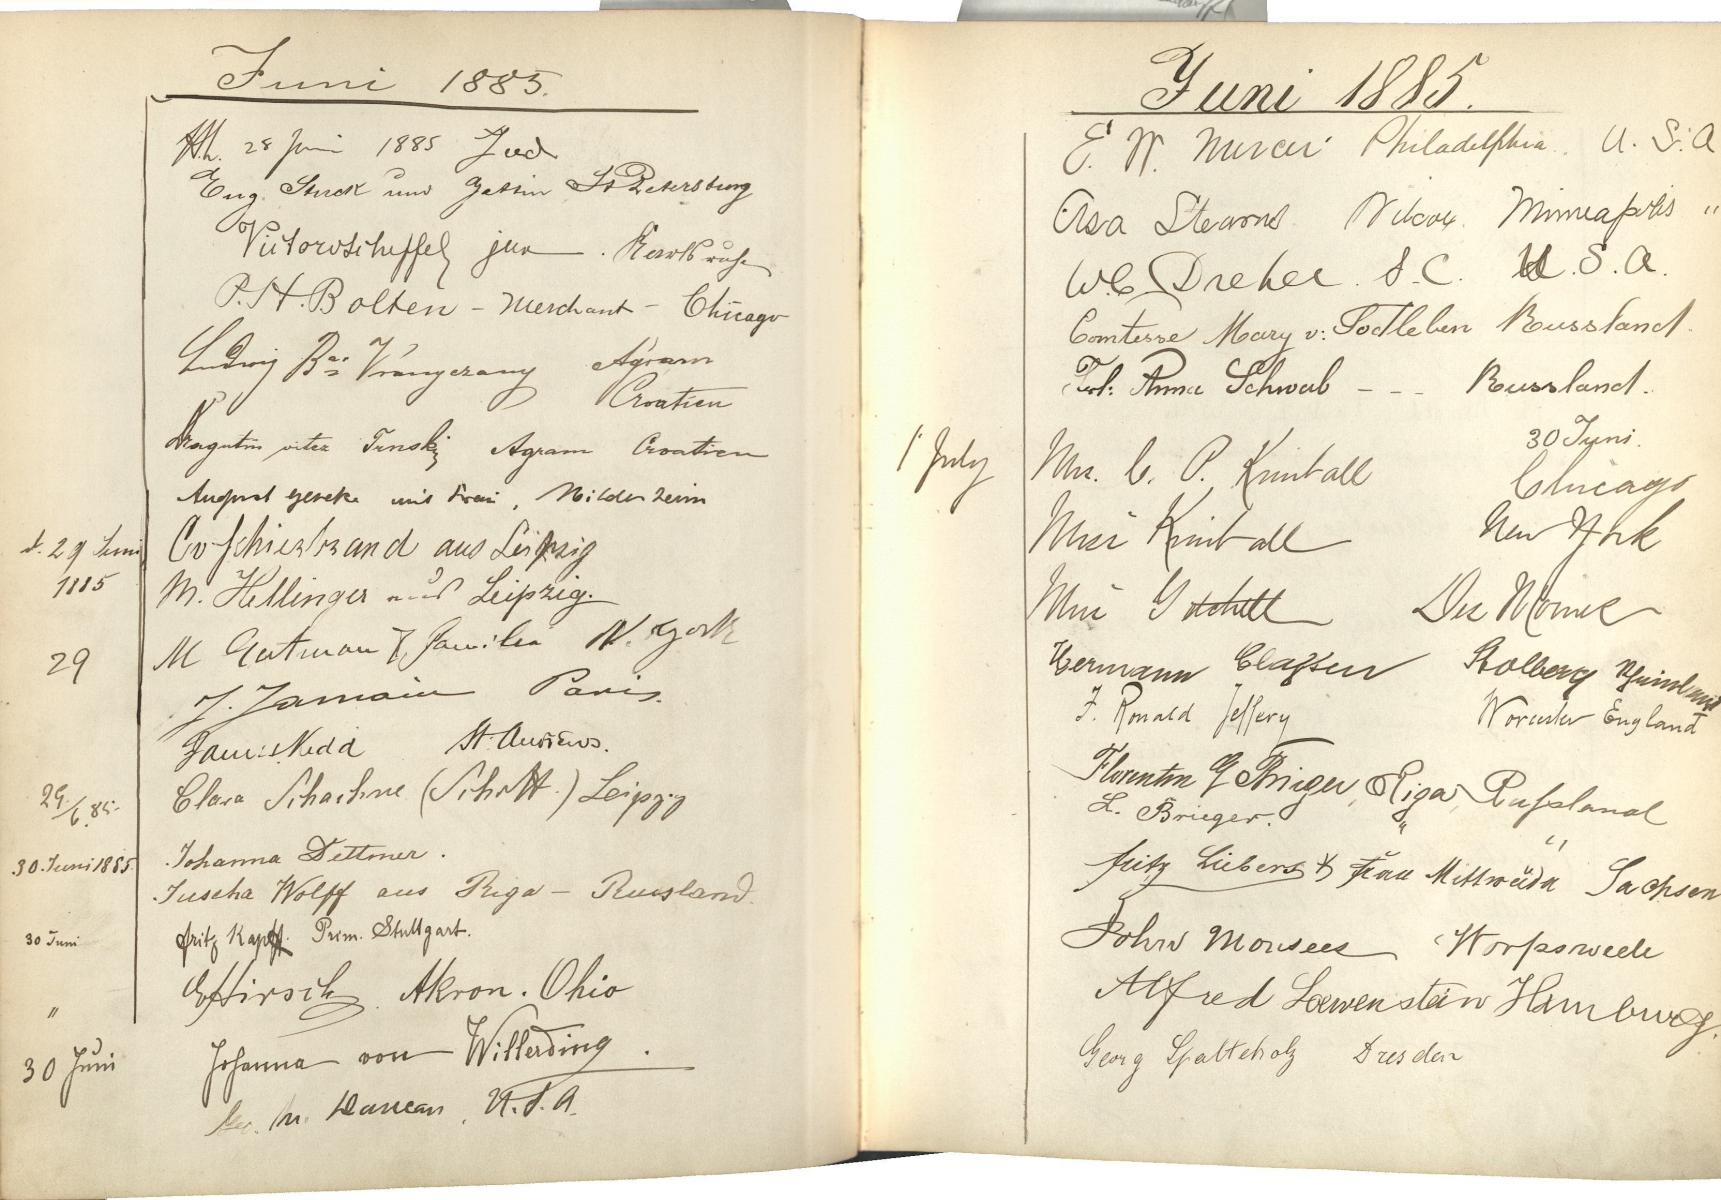 Juni 1885.
28 Juni 1885
Eug. Stuck und Gattin St Petersburg
Victor v Scheffel jun. Karlsruhe
P. H. Bolten - Merchant - Chicago
Ludwig Bar. Vranyczany Agram
Croatien
Dragutin vitez Trnski Agram Croatien
August Gereke mit Frau, Hildesheim
d. 29 Juni C v Schierbrand aus Leipzig
1885 M. Hellinger aus Leipzig.
29 M Gutman & Familie N. York
J. Jamain Paris.
James Kidd St. Andrews.
29/6.85. Clara Schachne (Schott.) Leipzig
30. Juni 1885. Johanna Dettmer.
Juscha Wolff aus Riga - Russland.
30 Juni Fritz Kapff. Prim. Stuttgart.
" E Hirsch Akron. Ohio
30 Juni Johanna von Willerding.
M. Duncan, U.S.A.
Juni 1885.
E. W. Mercer Philadelphia. U.S.A
Asa Stearns Wilcox. Minneapolis "
W.C. Dreher. S.C. U.S.A.
Comtesse Mary v. Todleben Russland.
Frl. Anna Schwab - - Russland.
30 Juni.
1 July Mrs. C. P. Kimball Chicago
Miss Kimball New York
Miss Getchell Des Moines
Hermann Classen Stolberg Rheinland
F. Ronald Jeffery Worcester England
Florentin G Brieger, Riga, Russland
L. Brieger. " "
Fritz Liebers & Frau Mittweida Sachsen
John Monsees Worpswede
Alfred Loewenstein Hamburg.
Georg Spalteholz Dresden